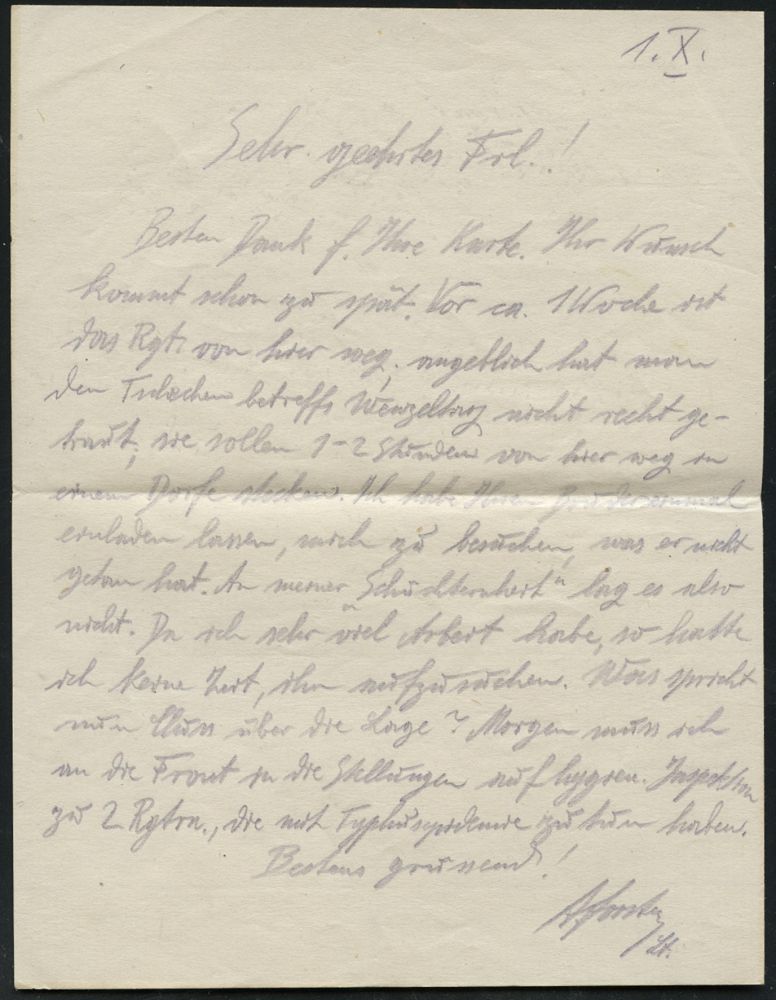 1. X.
Sehr geehrtes Frl.!
Besten Dank f. Ihre Karte. Ihr Wunsch
kommt schon zu spät. Vor ca. 1 Woche ist
das Rgt. von hier weg. angeblich hat man
den Tschechen betreffs Wenzeltag nicht recht ge-
traut; sie sollen 1-2 Stunden von hier weg in
einem Dorfe stecken. Ich habe Ihren Bruder einmal
einladen lassen, mich zu besuchen, was er nicht
getan hat. An meiner Schüchternheit" lag es also
nicht. Da ich sehr viel Arbeit habe, so hatte
ich keine Zeit, ihn aufzusuchen. Was spricht
nun über die Lage? Morgen muss ich
an die Front in die Stellungen auf hygien. Inspektion
zu 2 Rgtrn., die mit Typhusepidemie zu tun haben.
Bestens grüssend!
Lt.